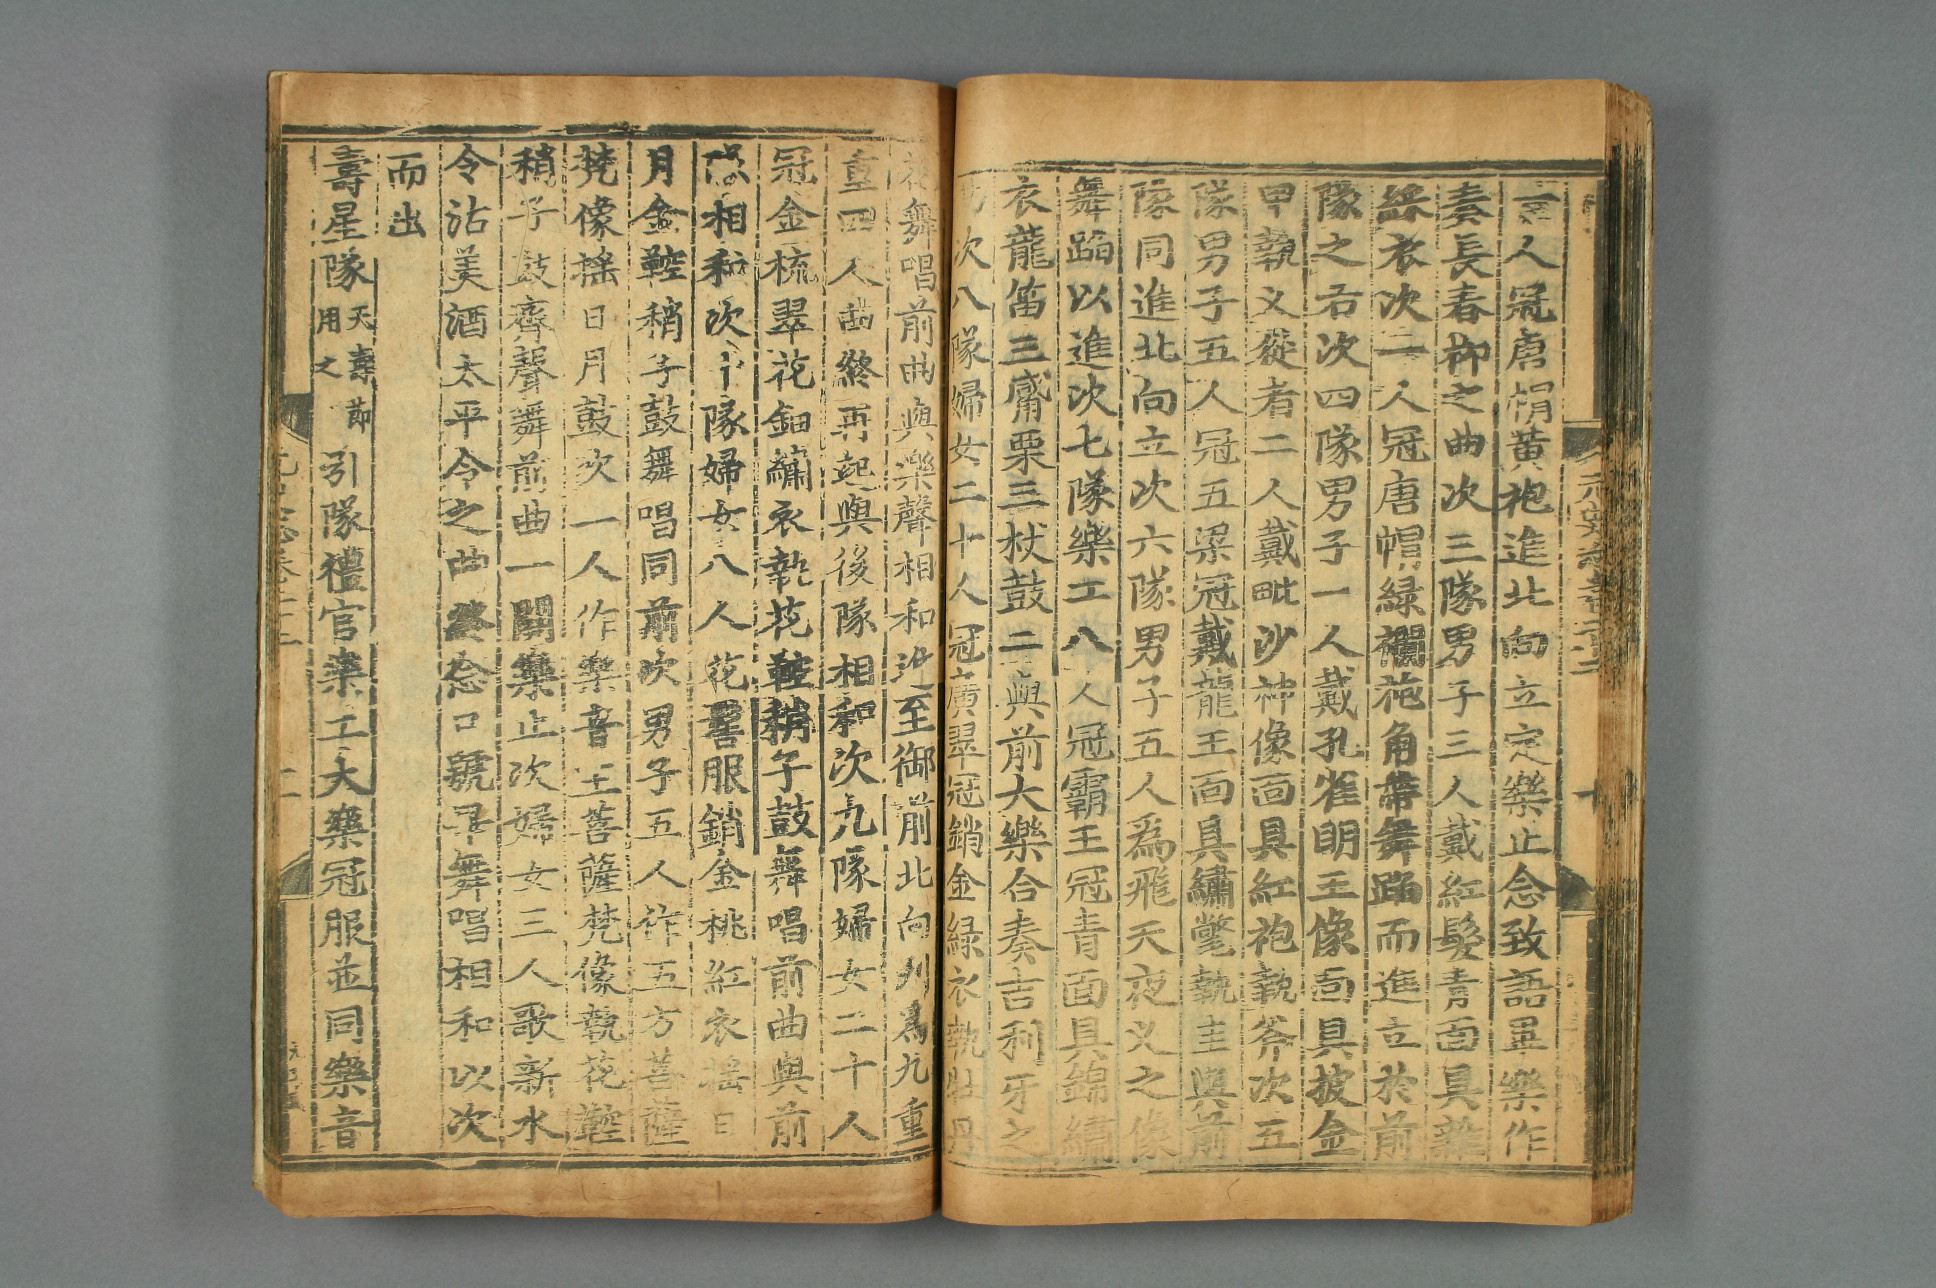 一人冠唐帽黄袍進北向立定樂止念致語畢樂作
奏長春柳之曲次三隊男子三人戴紅髮青面具雜
綵衣次一人冠唐帽綠襴袍角帶舞蹈而進立於前
隊之右次四隊男子一人戴孔雀明王像面具披金
甲執叉從者二人戴毗沙神像面具紅袍執斧次五
隊男子五人冠五梁冠戴龍王面具繡氅執圭與前
隊同進北向立次六隊男子五人爲飛天夜叉之像
舞蹈以進次七隊樂工八人冠霸王冠青面具錦繡
衣龍笛三觱栗三杖鼓二與前大樂合奏吉利牙之
曲次八隊婦女二十人冠廣翠冠銷金綠衣執牡丹
花舞唱前曲與樂聲相和進至御前北向列爲九重
重四人曲終再起與後隊相和次九隊婦女二十人
冠金梳翠花鈿繡衣執花鞚稍子鼓舞唱前曲與前
隊相和次十隊婦女八人花髻服銷金桃紅衣搖日
月金鞚稍子鼓舞唱同前次男子五人作五方菩薩
梵像搖日月鼓次一人作樂音王菩薩梵像執花鞚
稍子鼓齊聲舞前曲一闋樂止次婦女三人歌新水
令沽美酒太平令之曲終念口號畢舞唱相和以次
而出
壽星隊天壽節用之引隊禮官樂工大樂冠服並同樂音